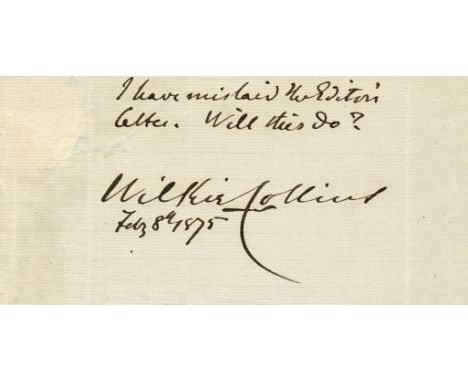 I have mislaid the Editor's
letter. Will this do?
Wilkie Collins
Feby 8th 1875